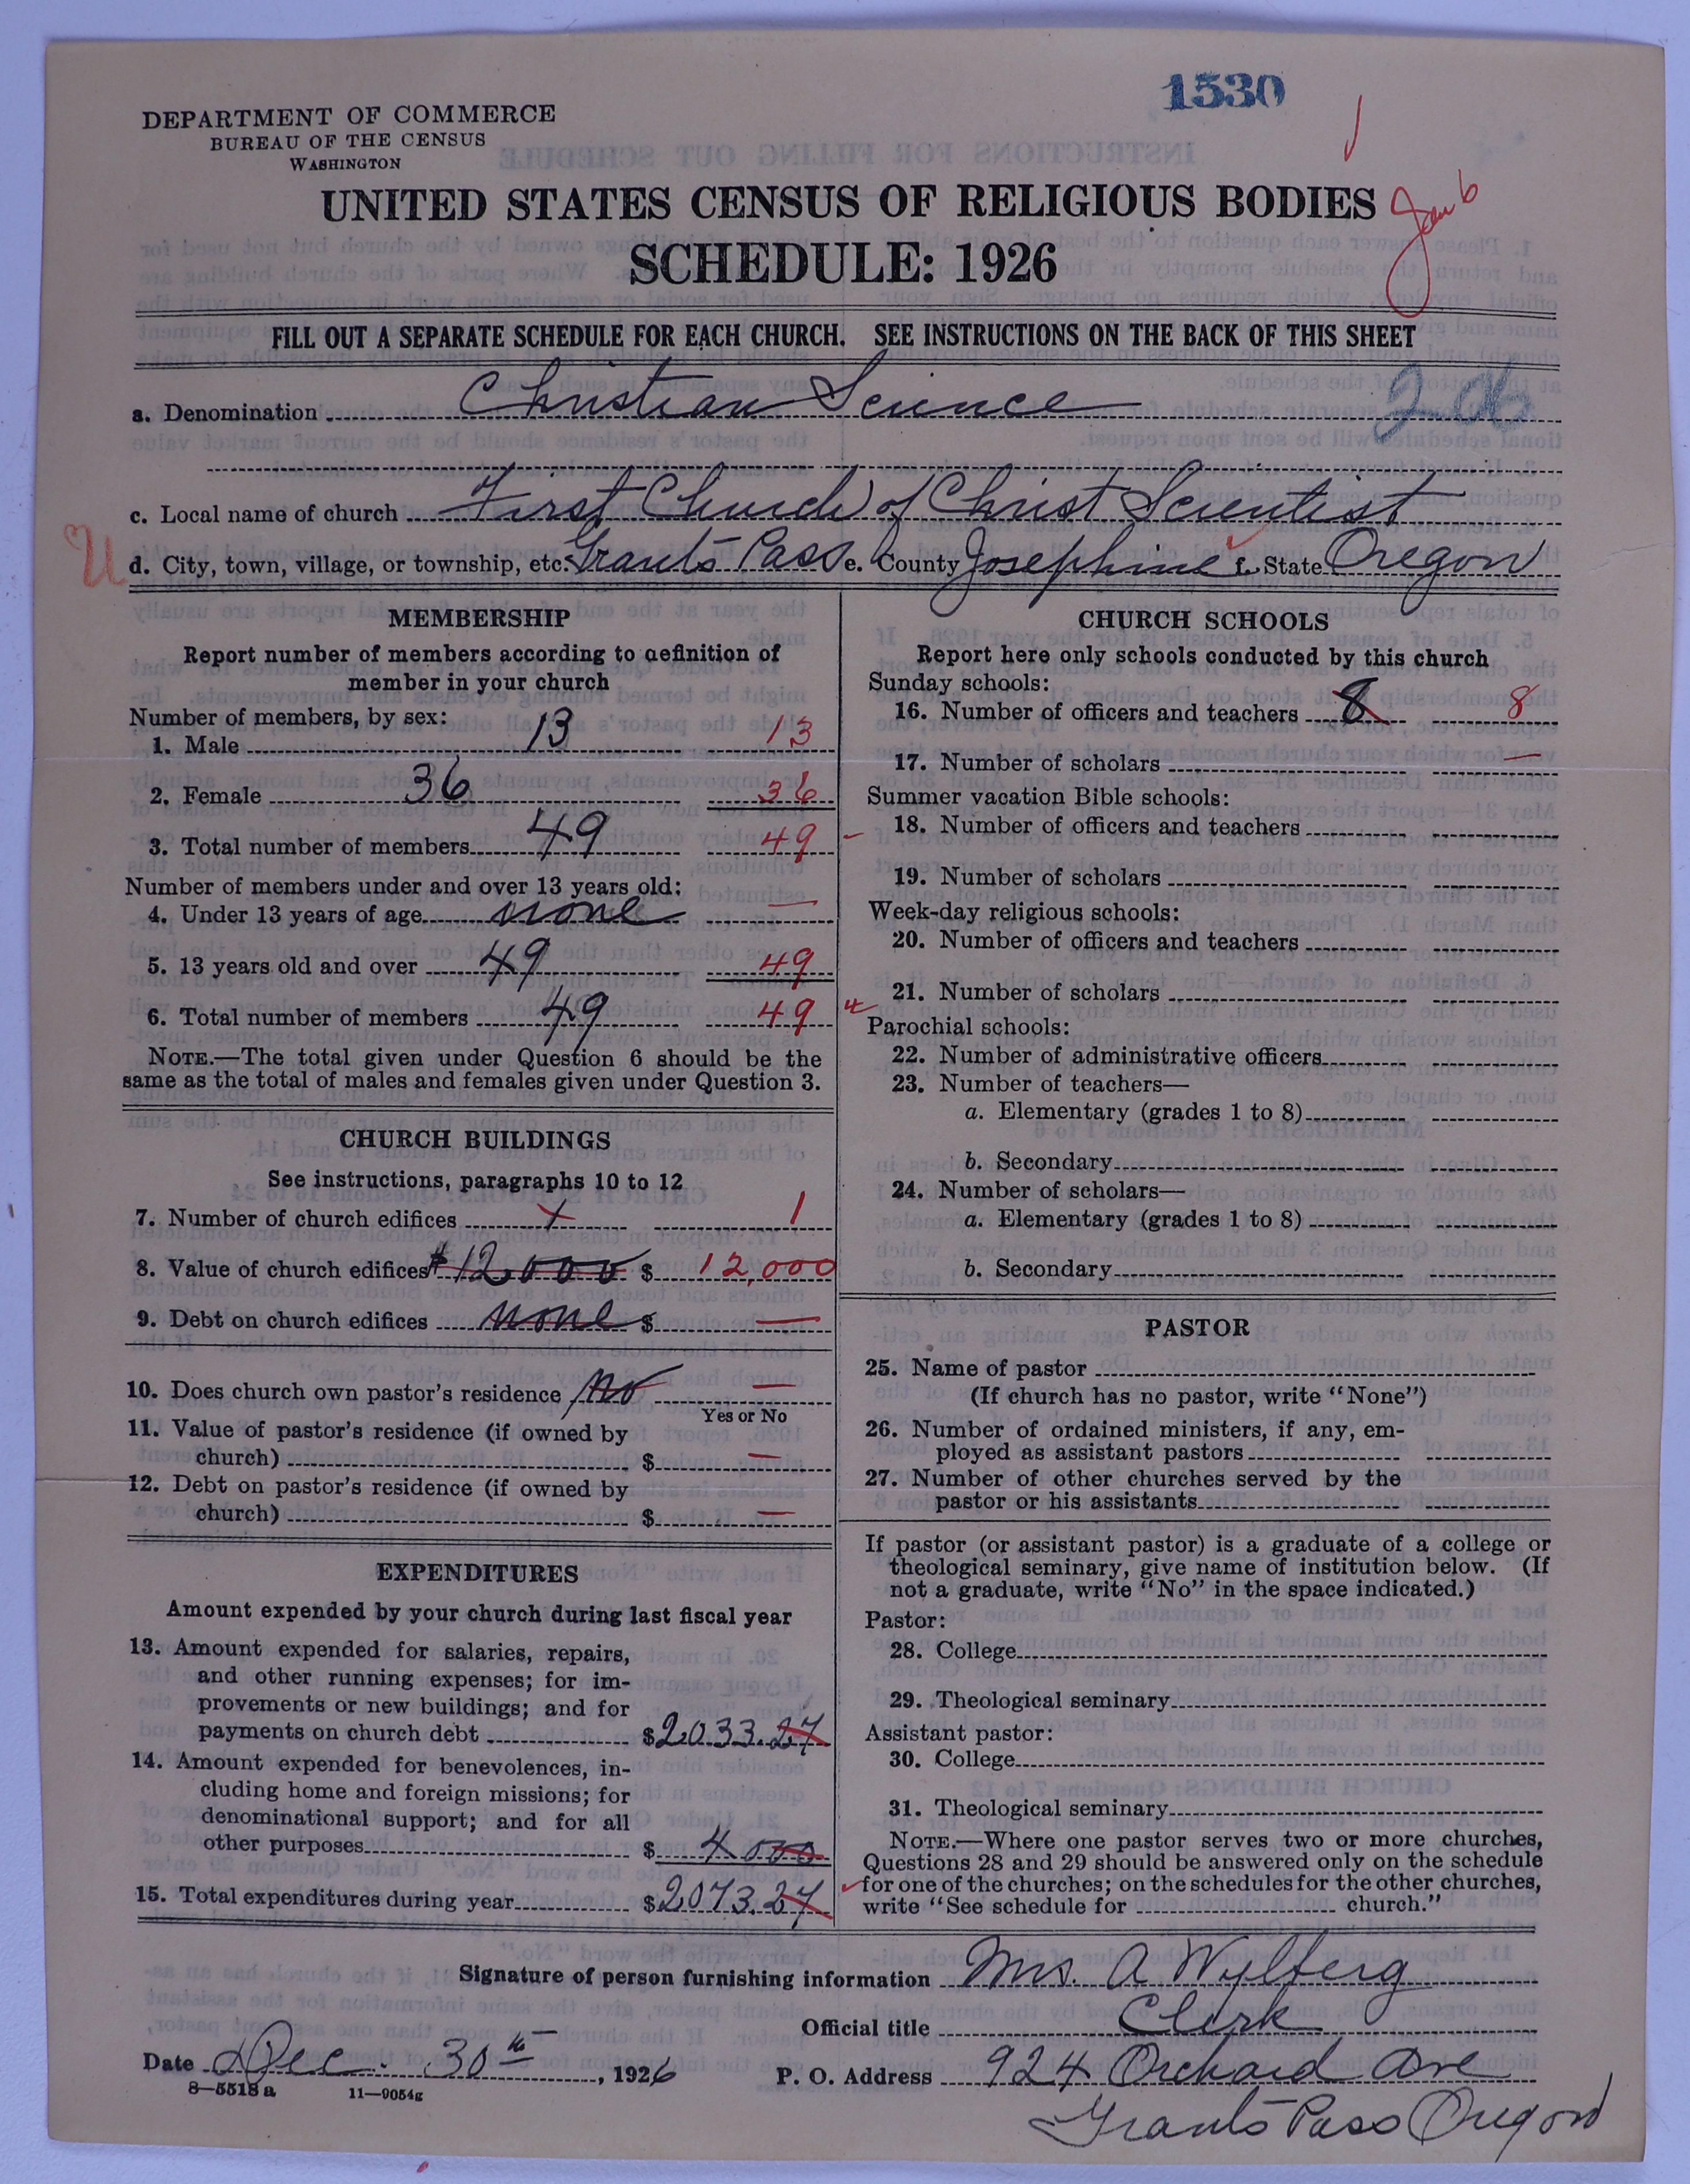 1530
DEPARTMENT OF COMMERCE
BUREAU OF THE CENSUS
WASHINGTON
UNITED STATES CENSUS OF RELIGIOUS BODIES
Jan 6
SCHEDULE: 1926
FILL OUT A SEPARATE SCHEDULE FOR EACH CHURCH. SEE INSTRUCTIONS ON THE BACK OF THIS SHEET
a. Denomination Christian Science
c. Local name of church First Church of Christ Scientist
U
d. City, town, village, or township, etc. Grants Pass e. County Josephine f. State Oregon
MEMBERSHIP
Report number of members according to definition of
member in your church
Number of members, by sex:
1. Male 13 13
2. Female 36 36
3. Total number of members 49 49
Number of members under and over 13 years old:
4. Under 13 years of age none —
5. 13 years old and over 49 49
6. Total number of members 49 49
NOTE.—The total given under Question 6 should be the
same as the total of males and females given under Question 3.
CHURCH BUILDINGS
See instructions, paragraphs 10 to 12
7. Number of church edifices 1 1
8. Value of church edifices $12,000 $ 12,000
9. Debt on church edifices none $ —
10. Does church own pastor's residence No —
Yes or No
11. Value of pastor's residence (if owned by
church) $ —
12. Debt on pastor's residence (if owned by
church) $ —
EXPENDITURES
Amount expended by your church during last fiscal year
13. Amount expended for salaries, repairs,
and other running expenses; for im-
provements or new buildings; and for
payments on church debt $2033.27
14. Amount expended for benevolences, in-
cluding home and foreign missions; for
denominational support; and for all
other purposes $ 40 00
15. Total expenditures during year $2073.27
CHURCH SCHOOLS
Report here only schools conducted by this church
Sunday schools:
16. Number of officers and teachers 8 8
17. Number of scholars —
Summer vacation Bible schools:
18. Number of officers and teachers
19. Number of scholars
Week-day religious schools:
20. Number of officers and teachers
21. Number of scholars
Parochial schools:
22. Number of administrative officers
23. Number of teachers—
a. Elementary (grades 1 to 8)
b. Secondary
24. Number of scholars—
a. Elementary (grades 1 to 8)
b. Secondary
PASTOR
25. Name of pastor
(If church has no pastor, write "None")
26. Number of ordained ministers, if any, em-
ployed as assistant pastors
27. Number of other churches served by the
pastor or his assistants
If pastor (or assistant pastor) is a graduate of a college or
theological seminary, give name of institution below. (If
not a graduate, write "No" in the space indicated.)
Pastor:
28. College
29. Theological seminary
Assistant pastor:
30. College
31. Theological seminary
NOTE.—Where one pastor serves two or more churches,
Questions 28 and 29 should be answered only on the schedule
for one of the churches; on the schedules for the other churches,
write "See schedule for church."
Signature of person furnishing information Mrs. A Wylberg
Official title Clerk
Date Dec. 30th, 1926 P. O. Address 924 Orchard Ave
8—5518 a 11—9054g
Grants Pass Oregon